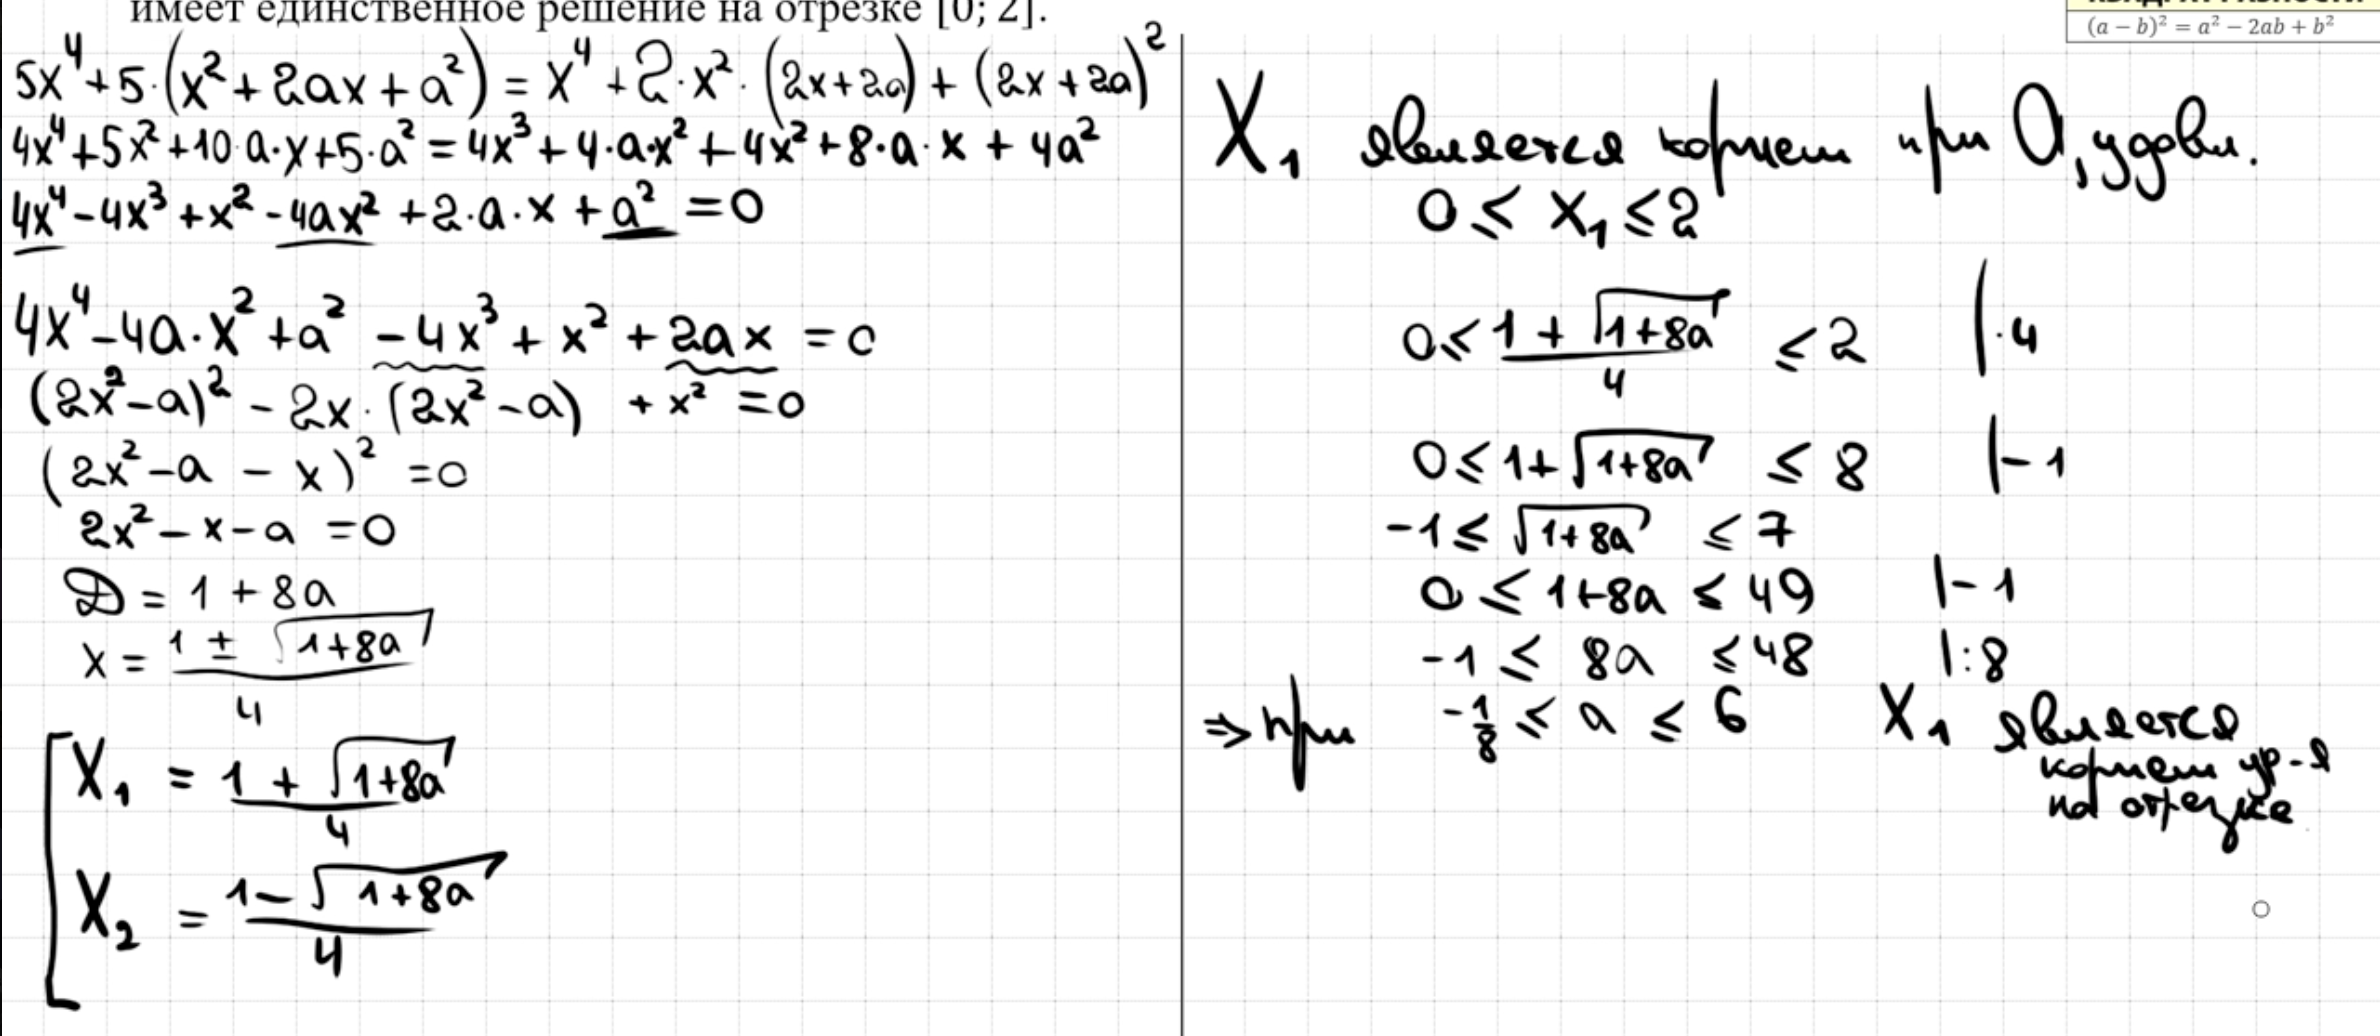 имеет единственное решение на отрезке [0; 2].
(a − b)² = a² − 2ab + b²
5x⁴+5·(x²+2ax+a²) = x⁴+2·x²·(2x+2a)+(2x+2a)²
4x⁴+5x²+10·a·x+5·a² = 4x³+4·a·x²+4x²+8·a·x+4a²
4x⁴-4x³+x²-4ax²+2·a·x+a²=0
4x⁴-4a·x²+a²-4x³+x²+2ax=0
(2x²-a)²-2x·(2x²-a)+x²=0
(2x²-a-x)²=0
2x²-x-a=0
D=1+8a
x=(1±√(1+8a))/4
x₁=(1+√(1+8a))/4
x₂=(1-√(1+8a))/4
x₁ является корнем при a, удовл.
0≤x₁≤2
0≤(1+√(1+8a))/4≤2 |·4
0≤1+√(1+8a)≤8 |-1
-1≤√(1+8a)≤7
0≤1+8a≤49 |-1
-1≤8a≤48 |:8
⇒ при -1/8≤a≤6 x₁ является
корнем ур-я
на отрезке